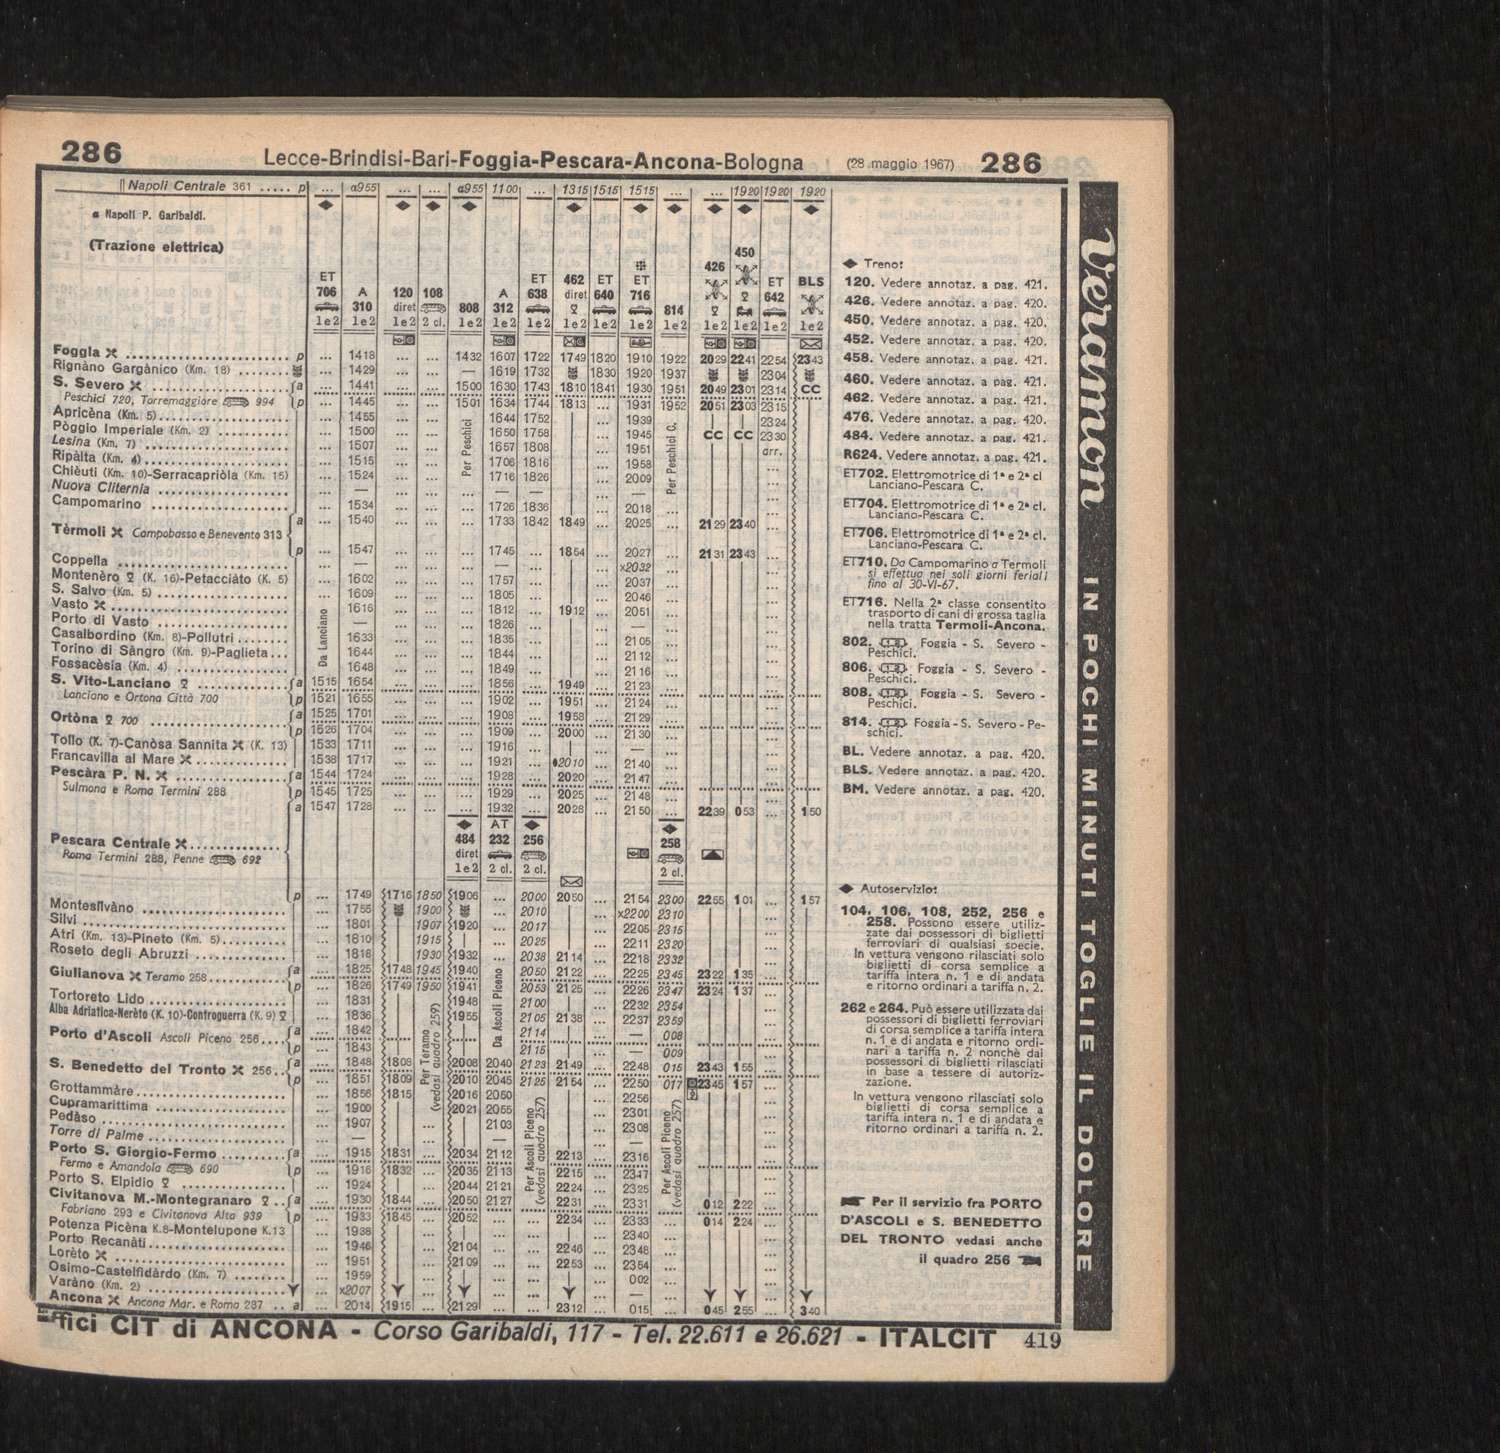 286 Lecce-Brindisi-Bari-Foggia-Pescara-Ancona-Bologna (28 maggio 1967) 286
Napoli Centrale 361 ..... p ... a955 ... ... a955 1100 ... 1315 1515 1515 ... ... 1920 1920 1920
a Napoli P. Garibaldi.
(Trazione elettrica)
ET 706 1e2
A 310 1e2
120 diret 1e2
108 2 cl.
808 1e2
A 312 1e2
ET 638 1e2
462 diret 1e2
ET 640 1e2
ET 716 1e2
814 1e2
426 1e2
450 1e2
ET 642 1e2
BLS 1e2
Foggia p ... 1418 ... ... 1432 1607 1722 1749 1820 1910 1922 2029 2241 2254 2343
Rignàno Gargànico (Km. 18) ... 1429 ... ... — 1619 1732 1830 1920 1937 2304
S. Severo a ... 1441 ... ... 1500 1630 1743 1810 1841 1930 1951 2049 2301 2314 CC
Peschici 720, Torremaggiore 994 p ... 1445 ... ... 1501 1634 1744 1813 ... 1931 1952 2051 2303 2315
Apricèna (Km. 5) ... 1455 ... ... 1644 1752 ... 1939 2324
Pòggio Imperiale (Km. 2) ... 1500 ... ... 1650 1758 ... 1945 CC CC 2330
Lesina (Km. 7) ... 1507 ... ... 1657 1808 ... 1951 arr.
Ripàlta (Km. 4) ... 1515 ... ... 1706 1816 ... 1958 ...
Chièuti (Km. 10)-Serracapriòla (Km. 15) ... 1524 ... ... 1716 1826 ... 2009 ...
Nuova Cliternia ... — ... ... — — ... — ...
Campomarino ... 1534 ... ... 1726 1836 ... 2018 ...
Tèrmoli Campobasso e Benevento 313 a ... 1540 ... ... 1733 1842 1849 ... 2025 2129 2340 ...
p ... 1547 ... ... 1745 ... 1854 ... 2027 2131 2343 ...
Coppella ... — ... ... — ... ... x2032 ...
Montenèro (K. 16)-Petacciàto (K. 5) ... 1602 ... ... 1757 ... ... 2037 ...
S. Salvo (Km. 5) ... 1609 ... ... 1805 ... ... 2046 ...
Vasto ... 1616 ... ... 1812 ... 1912 ... 2051 ...
Porto di Vasto — ... ... 1826 ... ... — ...
Casalbordino (Km. 8)-Pollutri 1633 ... ... 1835 ... ... 2105 ...
Torino di Sàngro (Km. 9)-Paglieta 1644 ... ... 1844 ... ... 2112 ...
Fossacèsia (Km. 4) 1648 ... ... 1849 ... ... 2116 ...
S. Vito-Lanciano a 1515 1654 ... ... 1856 ... 1949 ... 2123 ...
Lanciano e Ortona Città 700 p 1521 1655 ... ... 1902 ... 1951 ... 2124 ...
Ortòna 700 a 1525 1701 ... ... 1908 ... 1958 ... 2129 ...
p 1526 1704 ... ... 1909 ... 2000 ... 2130 ...
Tollo (K. 7)-Canòsa Sannita (K. 13) 1533 1711 ... ... 1916 ... ... — ...
Francavilla al Mare 1538 1717 ... ... 1921 ... 2010 ... 2140 ...
Pescàra P. N. a 1544 1724 ... ... 1928 ... 2020 ... 2147 ...
Sulmona e Roma Termini 288 p 1545 1725 ... ... 1929 ... 2025 ... 2148 ...
a 1547 1728 ... ... 1932 ... 2028 ... 2150 ... 2239 053 ... 150
Da Lanciano
Per Peschici
Per Peschici C.
Pescara Centrale
Roma Termini 288, Penne 692
484 diret 1e2
AT 232 2 cl.
256 2 cl.
258 2 cl.
p ... 1749 1716 1850 1906 ... 2000 2050 ... 2154 2300 2255 101 ... 157
Montesilvàno ... 1755 1900 ... 2010 ... x2200 2310 ...
Silvi ... 1801 1907 1920 ... 2017 ... 2205 2315 ...
Atri (Km. 13)-Pineto (Km. 5) ... 1810 1915 ... 2025 ... 2211 2320 ...
Roseto degli Abruzzi ... 1818 1930 1932 2038 2114 ... 2218 2332 ...
Giulianova Teramo 258 a ... 1825 1748 1945 1940 2050 2122 ... 2225 2345 2322 135 ...
p ... 1826 1749 1950 1941 2053 2125 ... 2226 2347 2324 137 ...
Tortoreto Lido ... 1831 1948 2100 ... 2232 2354 ...
Alba Adriatica-Nerèto (K. 10)-Controguerra (K. 9) ... 1836 1955 2105 2138 ... 2237 2359 ...
Porto d'Ascoli Ascoli Piceno 256 a ... 1842 2114 ... — 008 ...
p ... 1843 2115 ... — 009 ...
S. Benedetto del Tronto 256 a ... 1848 1808 2008 2040 2123 2149 ... 2248 015 2343 155 ...
p ... 1851 1809 2010 2045 2125 2154 ... 2250 017 2345 157 ...
Grottammàre ... 1856 1815 ... 2016 2050 ... 2256 ...
Cupramarittima ... 1900 ... 2021 2055 ... 2301 ...
Pedàso ... 1907 ... 2103 ... 2308 ...
Torre di Palme ... — ... — ... — ...
Porto S. Giorgio-Fermo a ... 1915 1831 ... 2034 2112 2213 ... 2316 ...
Fermo e Amandola 690 p ... 1916 1832 ... 2035 2113 2215 ... 2317 ...
Porto S. Elpidio ... 1924 ... 2044 2121 2224 ... 2325 ...
Civitanova M.-Montegranaro a ... 1930 1844 ... 2050 2127 2231 ... 2331 012 222 ...
Fabriano 293 e Civitanova Alta 939 p ... 1933 1845 ... 2052 ... ... 2234 ... 2333 ... 014 224 ...
Potenza Picèna K.8-Montelupone K.13 ... 1938 ... ... ... ... 2340 ...
Porto Recanàti ... 1946 ... 2104 ... ... 2246 ... 2348 ...
Lorèto ... 1951 ... 2109 ... ... 2253 ... 2354 ...
Osimo-Castelfidàrdo (Km. 7) ... 1959 ... ... ... ... 002 ...
Varàno (Km. 2) ... x2007 ... ... ... ... — ...
Ancona Ancona Mar. e Roma 287 .. a ... 2014 1915 ... 2129 ... ... 2312 ... 015 ... 045 255 ... 340
Per Teramo (vedasi quadro 259)
Da Ascoli Piceno
Per Ascoli Piceno (vedasi quadro 257)
Per Ascoli Piceno (vedasi quadro 257)
Treno:
120. Vedere annotaz. a pag. 421.
426. Vedere annotaz. a pag. 420.
450. Vedere annotaz. a pag. 420.
452. Vedere annotaz. a pag. 420.
458. Vedere annotaz. a pag. 421.
460. Vedere annotaz. a pag. 421.
462. Vedere annotaz. a pag. 421.
476. Vedere annotaz. a pag. 420.
484. Vedere annotaz. a pag. 421.
R624. Vedere annotaz. a pag. 421.
ET702. Elettromotrice di 1ª e 2ª cl
Lanciano-Pescara C.
ET704. Elettromotrice di 1ª e 2ª cl.
Lanciano-Pescara C.
ET706. Elettromotrice di 1ª e 2ª cl.
Lanciano-Pescara C.
ET710. Da Campomarino a Termoli
si effettua nei soli giorni feriali
fino al 30-VI-67.
ET716. Nella 2ª classe consentito
trasporto di cani di grossa taglia
nella tratta Termoli-Ancona.
802. Foggia - S. Severo -
Peschici.
806. Foggia - S. Severo -
Peschici.
808. Foggia - S. Severo -
Peschici.
814. Foggia - S. Severo - Pe-
schici.
BL. Vedere annotaz. a pag. 420.
BLS. Vedere annotaz. a pag. 420.
BM. Vedere annotaz. a pag. 420.
Autoservizio:
104, 106, 108, 252, 256 e
258. Possono essere utiliz-
zate dai possessori di biglietti
ferroviari di qualsiasi specie.
In vettura vengono rilasciati solo
biglietti di corsa semplice a
tariffa intera n. 1 e di andata
e ritorno ordinari a tariffa n. 2.
262 e 264. Può essere utilizzata dai
possessori di biglietti ferroviari
di corsa semplice a tariffa intera
n. 1 e di andata e ritorno ordi-
nari a tariffa n. 2 nonchè dai
possessori di biglietti rilasciati
in base a tessere di autoriz-
zazione.
In vettura vengono rilasciati solo
biglietti di corsa semplice a
tariffa intera n. 1 e di andata e
ritorno ordinari a tariffa n. 2.
Per il servizio fra PORTO
D'ASCOLI e S. BENEDETTO
DEL TRONTO vedasi anche
il quadro 256
Veramon IN POCHI MINUTI TOGLIE IL DOLORE
ffici CIT di ANCONA - Corso Garibaldi, 117 - Tel. 22.611 e 26.621 - ITALCIT 419